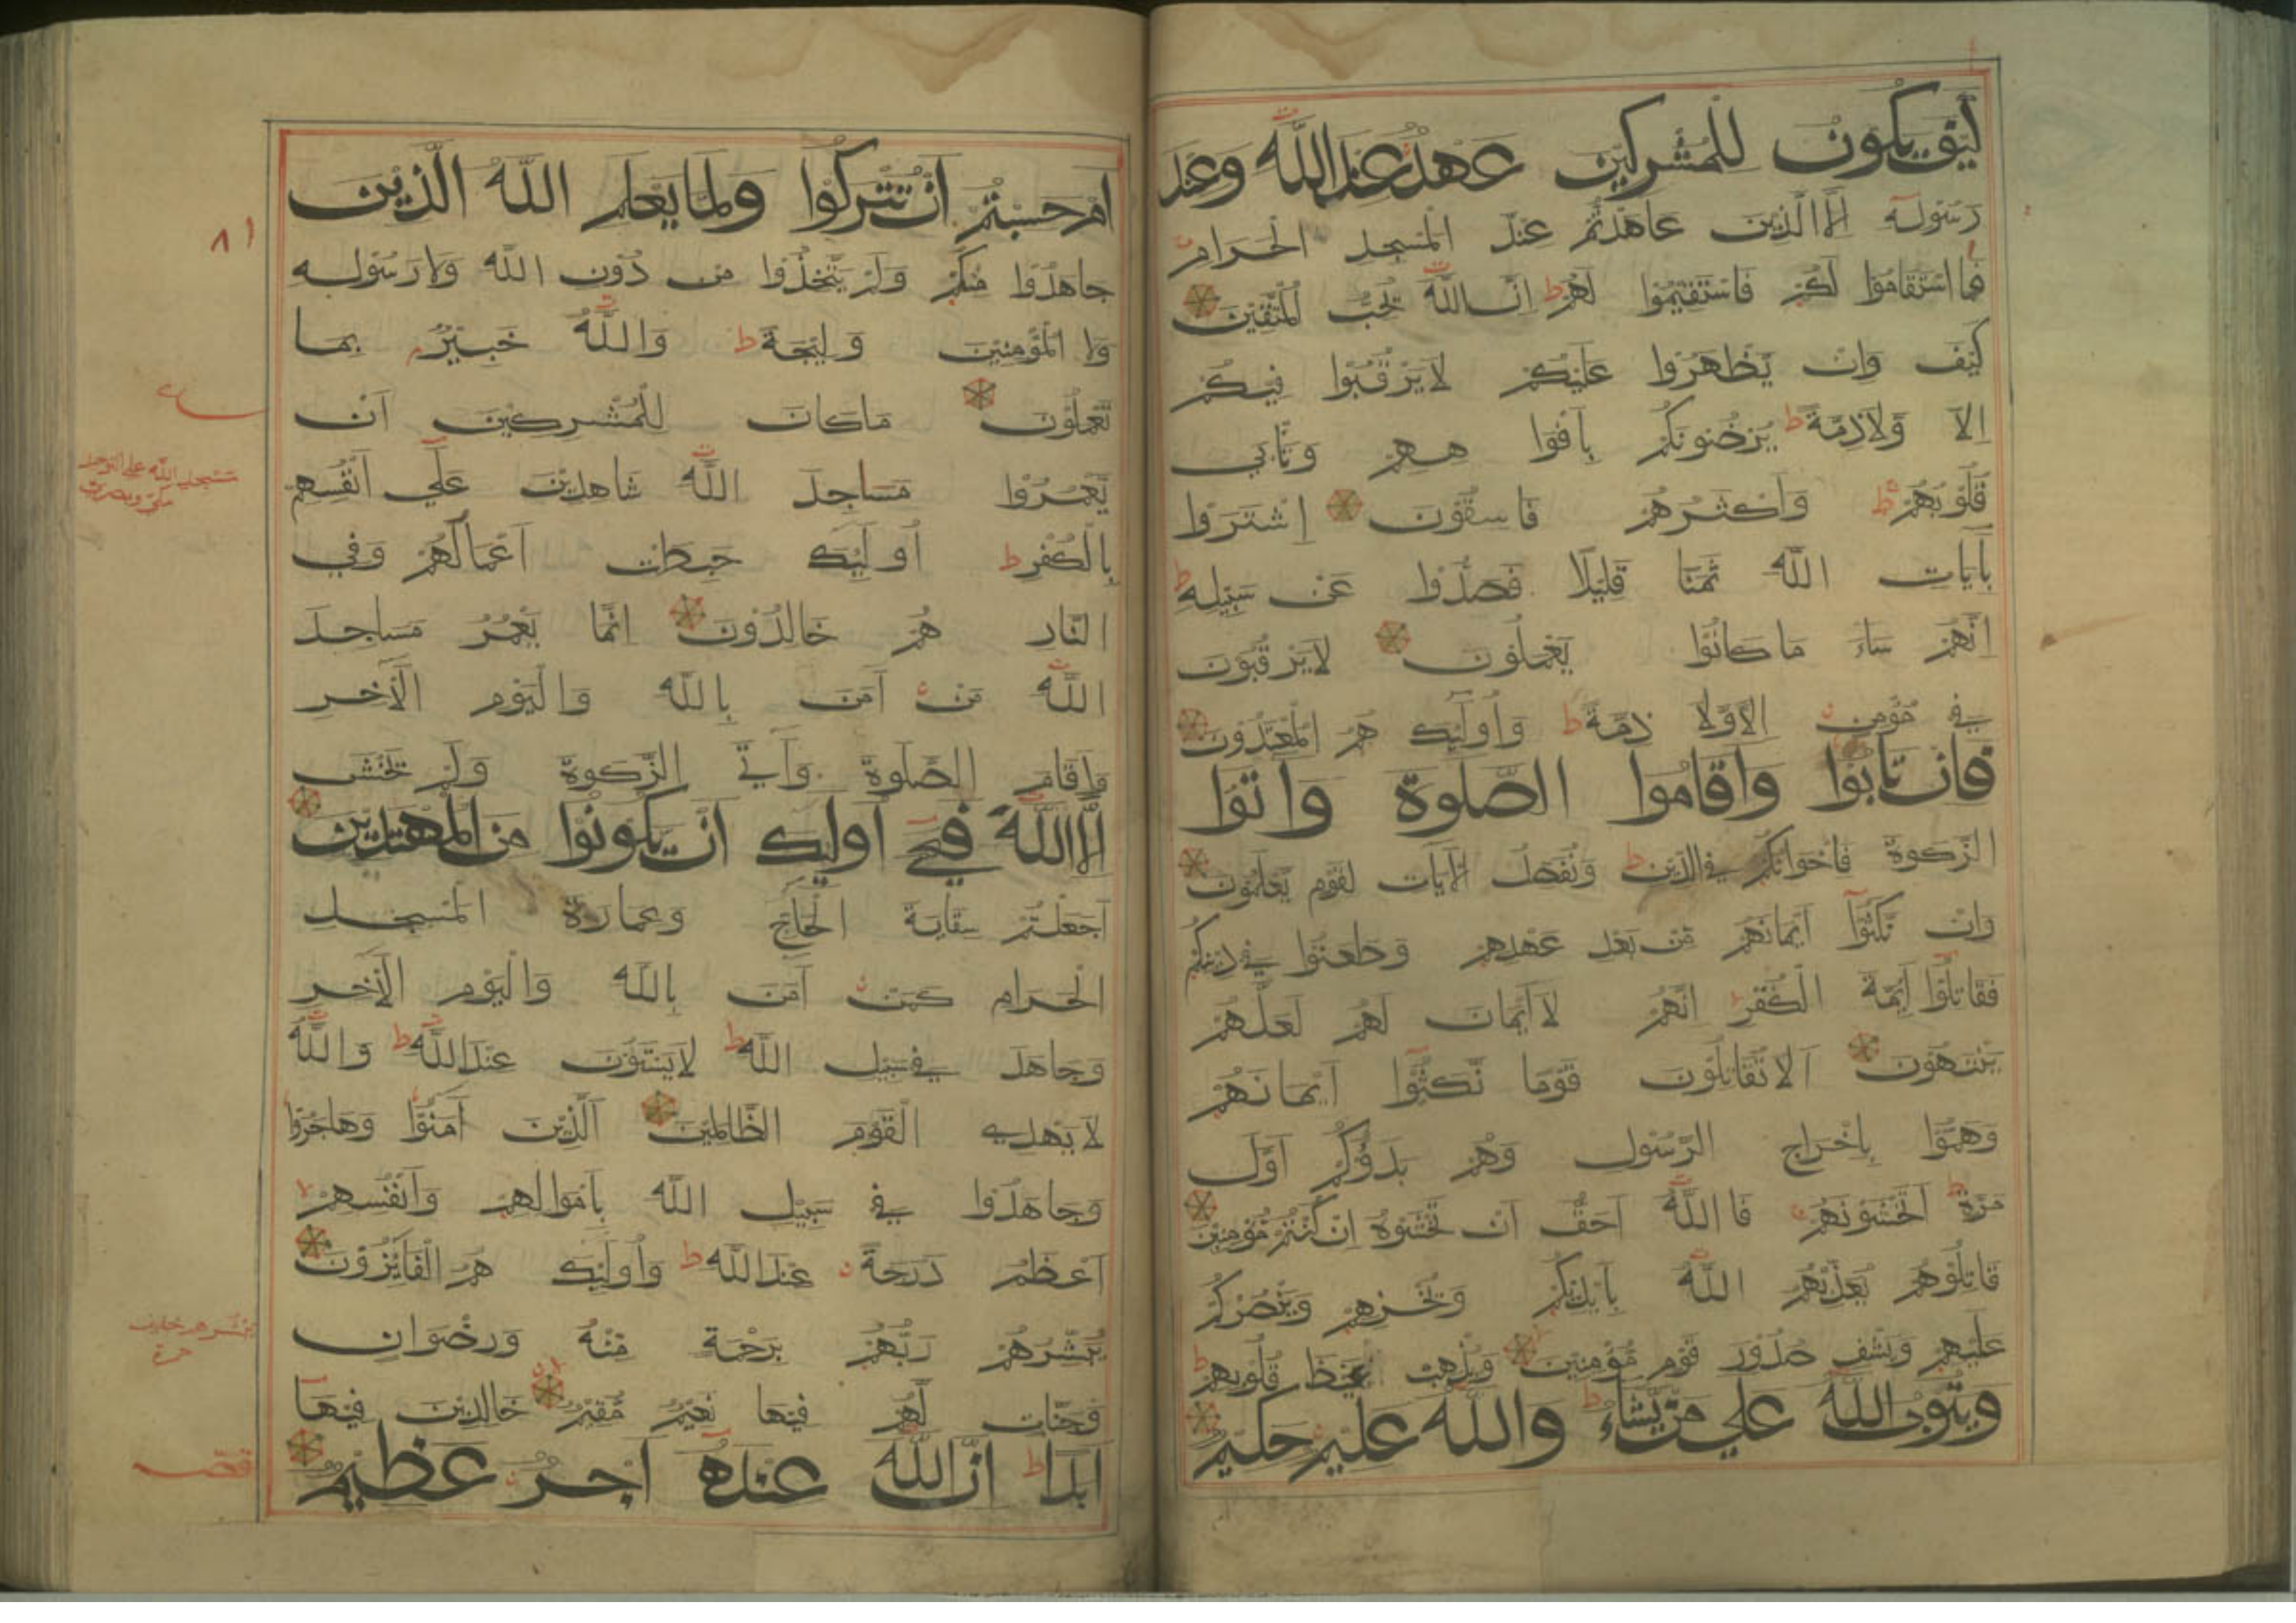 كَيْفَ يَكُونُ لِلْمُشْرِكِيْنَ عَهْدٌ عِنْدَ اللّٰهِ وَعِنْدَ
رَسُوْلِهِ اِلَّا الَّذِيْنَ عَاهَدْتُمْ عِنْدَ الْمَسْجِدِ الْحَرَامِ
فَمَا اسْتَقَامُوْا لَكُمْ فَاسْتَقِيْمُوْا لَهُمْ ط اِنَّ اللّٰهَ يُحِبُّ الْمُتَّقِيْنَ
كَيْفَ وَاِنْ يَّظْهَرُوْا عَلَيْكُمْ لَا يَرْقُبُوْا فِيْكُمْ
اِلًّا وَّلَا ذِمَّةً ط يُرْضُوْنَكُمْ بِاَفْوَا هِهِمْ وَتَاْبٰى
قُلُوْبُهُمْ ط وَاَكْثَرُهُمْ فَاسِقُوْنَ اِشْتَرَوْا
بِاٰيَاتِ اللّٰهِ ثَمَنًا قَلِيْلًا فَصَدُّوْا عَنْ سَبِيْلِهِ ط
اِنَّهُمْ سَاءَ مَا كَانُوْا يَعْمَلُوْنَ لَا يَرْقُبُوْنَ
فِي مُؤْمِنٍ اِلًّا وَّلَا ذِمَّةً ط وَاُولٰٓئِكَ هُمُ الْمُعْتَدُوْنَ
فَاِنْ تَابُوْا وَاَقَامُوا الصَّلٰوةَ وَاٰتَوُا
الزَّكٰوةَ فَاِخْوَانُكُمْ فِي الدِّيْنِ ط وَنُفَصِّلُ الْاٰيَاتِ لِقَوْمٍ يَّعْلَمُوْنَ
وَاِنْ نَّكَثُوْٓا اَيْمَانَهُمْ مِّنْ بَعْدِ عَهْدِهِمْ وَطَعَنُوْا فِيْ دِيْنِكُمْ
فَقَاتِلُوْٓا اَئِمَّةَ الْكُفْرِ اِنَّهُمْ لَآ اَيْمَانَ لَهُمْ لَعَلَّهُمْ
يَنْتَهُوْنَ اَلَا تُقَاتِلُوْنَ قَوْمًا نَّكَثُوْٓا اَيْمَانَهُمْ
وَهَمُّوْا بِاِخْرَاجِ الرَّسُوْلِ وَهُمْ بَدَءُوْكُمْ اَوَّلَ
مَرَّةٍ ط اَتَخْشَوْنَهُمْ فَاللّٰهُ اَحَقُّ اَنْ تَخْشَوْهُ اِنْ كُنْتُمْ مُّؤْمِنِيْنَ
قَاتِلُوْهُمْ يُعَذِّبْهُمُ اللّٰهُ بِاَيْدِيْكُمْ وَيُخْزِهِمْ وَيَنْصُرْكُمْ
عَلَيْهِمْ وَيَشْفِ صُدُوْرَ قَوْمٍ مُّؤْمِنِيْنَ وَيُذْهِبْ غَيْظَ قُلُوْبِهِمْ ط
وَيَتُوْبُ اللّٰهُ عَلٰى مَنْ يَّشَاءُ ط وَاللّٰهُ عَلِيْمٌ حَكِيْمٌ
اَمْ حَسِبْتُمْ اَنْ تُتْرَكُوْا وَلَمَّا يَعْلَمِ اللّٰهُ الَّذِيْنَ
جَاهَدُوْا مِنْكُمْ وَلَمْ يَتَّخِذُوْا مِنْ دُوْنِ اللّٰهِ وَلَا رَسُوْلِهِ
وَلَا الْمُؤْمِنِيْنَ وَلِيْجَةً ط وَاللّٰهُ خَبِيْرٌ بِمَا
تَعْمَلُوْنَ مَا كَانَ لِلْمُشْرِكِيْنَ اَنْ
يَّعْمُرُوْا مَسَاجِدَ اللّٰهِ شَاهِدِيْنَ عَلٰٓى اَنْفُسِهِمْ
بِالْكُفْرِ ط اُولٰٓئِكَ حَبِطَتْ اَعْمَالُهُمْ وَفِي
النَّارِ هُمْ خَالِدُوْنَ اِنَّمَا يَعْمُرُ مَسَاجِدَ
اللّٰهِ مَنْ اٰمَنَ بِاللّٰهِ وَالْيَوْمِ الْاٰخِرِ
وَاَقَامَ الصَّلٰوةَ وَاٰتَى الزَّكٰوةَ وَلَمْ يَخْشَ
اِلَّا اللّٰهَ فَعَسٰٓى اُولٰٓئِكَ اَنْ يَّكُوْنُوْا مِنَ الْمُهْتَدِيْنَ
اَجَعَلْتُمْ سِقَايَةَ الْحَاجِّ وَعِمَارَةَ الْمَسْجِدِ
الْحَرَامِ كَمَنْ اٰمَنَ بِاللّٰهِ وَالْيَوْمِ الْاٰخِرِ
وَجَاهَدَ فِيْ سَبِيْلِ اللّٰهِ ط لَا يَسْتَوُوْنَ عِنْدَ اللّٰهِ ط وَاللّٰهُ
لَا يَهْدِي الْقَوْمَ الظَّالِمِيْنَ اَلَّذِيْنَ اٰمَنُوْا وَهَاجَرُوْا
وَجَاهَدُوْا فِيْ سَبِيْلِ اللّٰهِ بِاَمْوَالِهِمْ وَاَنْفُسِهِمْ
اَعْظَمُ دَرَجَةً عِنْدَ اللّٰهِ ط وَاُولٰٓئِكَ هُمُ الْفَائِزُوْنَ
يُبَشِّرُهُمْ رَبُّهُمْ بِرَحْمَةٍ مِّنْهُ وَرِضْوَانٍ
وَّجَنَّاتٍ لَّهُمْ فِيْهَا نَعِيْمٌ مُّقِيْمٌ خَالِدِيْنَ فِيْهَا
اَبَدًا ط اِنَّ اللّٰهَ عِنْدَهُ اَجْرٌ عَظِيْمٌ